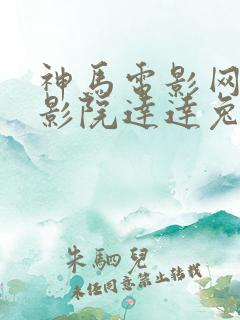 神馬電影网
影院達達兔
朱駟兒
未经同意禁止转载